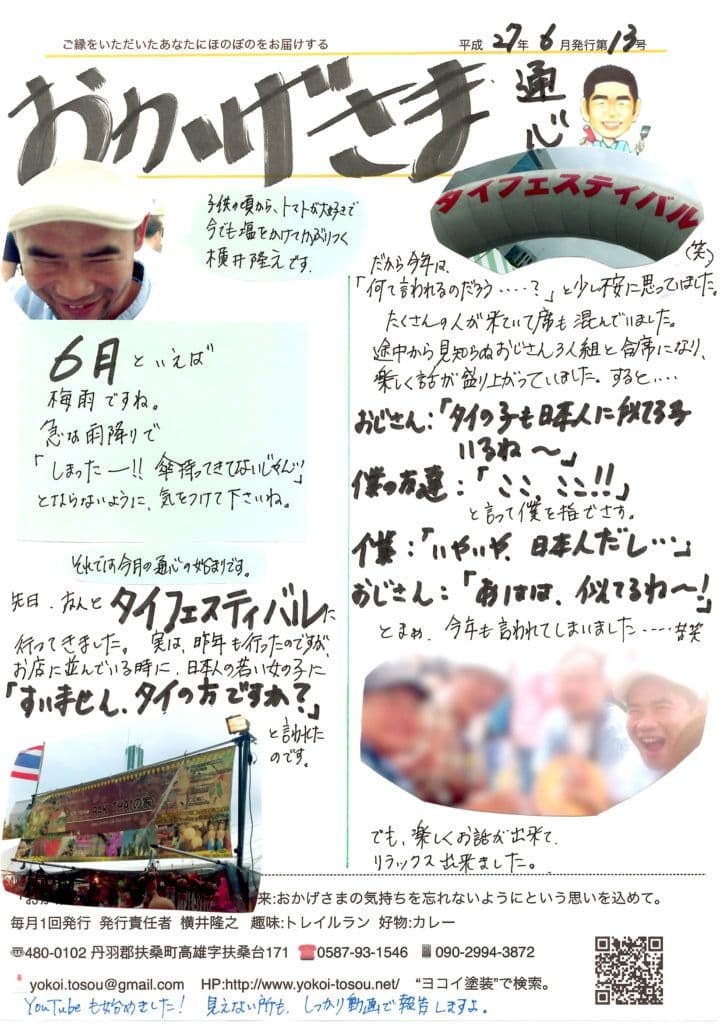 ご縁をいただいたあなたにほのぼのをお届けする
平成 27年 6月発行第13号
おかげさま
通心
子供の頃から、トマトが大好きで
今でも塩をかけてかぶりつく
横井隆之です。
6月といえば
梅雨ですね。
急な雨降りで
「しまったー!! 傘持ってきてないじゃん!!」
とならないように、気をつけて下さいね。
それでは今月の通心の始まりです。
先日、なんとタイフェスティバルに
行ってきました。 実は、昨年も行ったのですが、
お店に並んでいる時に、日本人の若い女の子に
「すいません、タイの方ですか?」
と言われた
のです。
RAK THAIの家
タイフェスティバル
(笑)
だから今年は、
「何て言われるのだろう・・・・・?」と少し不安に思っていました。
たくさんの人が来ていて席も混んでいました。
途中から見知らぬおじさん3人組と合席になり、
楽しく話が盛り上がっていました。すると・・・
おじさん:「タイの子も日本人に似てる子
いるね〜」
僕の友達:「ここ、ここ!!」
と言って僕を指でさす。
僕:「いやいや、日本人だし・・・」
おじさん:「あはは、似てるね〜!」
とまぁ、今年も言われてしまいました・・・・・苦笑
でも、楽しくお話が出来て、
リラックス出来ました。
来:おかげさまの気持ちを忘れないようにという思いを込めて。
毎月1回発行 発行責任者 横井隆之 趣味:トレイルラン 好物:カレー
〠480-0102 丹羽郡扶桑町高雄字扶桑台171 ☎0587-93-1546 📱090-2994-3872
yokoi.tosou@gmail.com HP:http://www.yokoi-tosou.net/ “ヨコイ塗装”で検索。
YouTubeも始めました! 見えない所も、しっかり動画で報告しますよ。